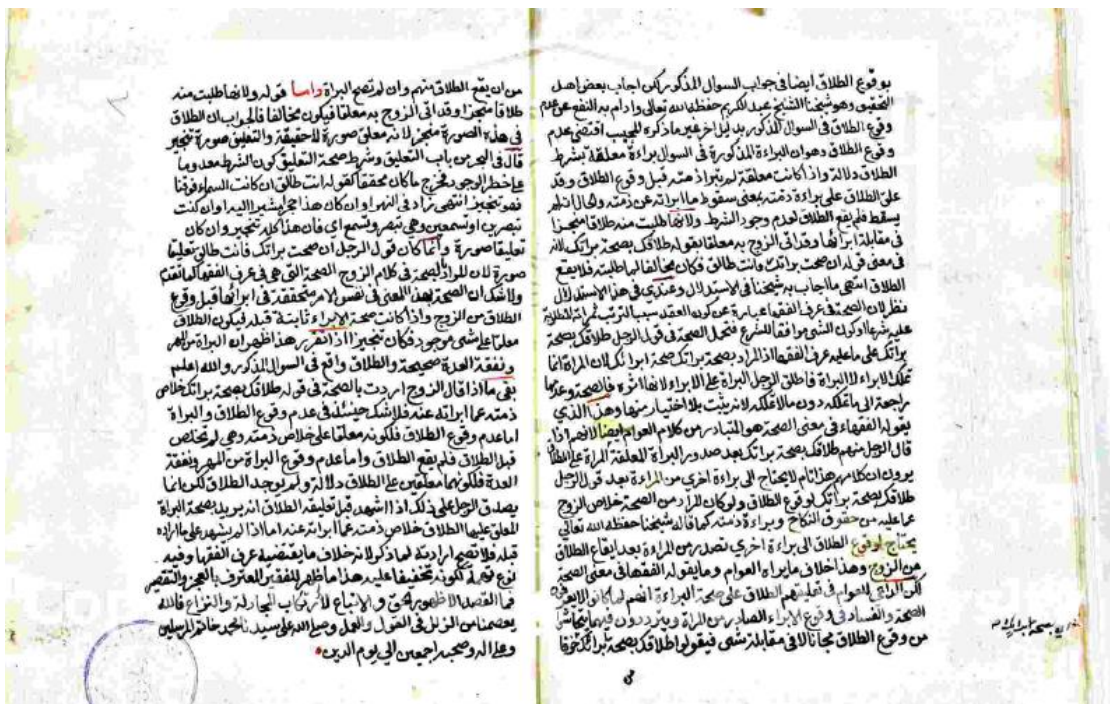 بوقوع الطلاق ايضا في جواب السوال المذكور لكن اجاب بعض اهل
التحقيق وهو شيخنا الشيخ عبد الكريم حفظه الله تعالى وادام به النفع عن عدم
وقوع الطلاق في السوال المذكور بدليل اخر غير ما ذكره المجيب اقتضى عدم
وقوع الطلاق وهو ان البراءة المذكورة في السوال براءة معلقة بشرط
الطلاق دلالة واذا كانت معلقة لم يتبرا ذمته قبل وقوع الطلاق وقد
علق الطلاق على براءة ذمته بمعنى سقوط ما ابراته عن ذمته والحال انه لم
يسقط فلم يقع الطلاق لعدم وجود الشرط ولانها طلبت منه طلاقا منجزا
في مقابلة ابرائها وقد اتى الزوج به معلقا بقوله طلاقك بصحة براتك لانه
في معنى قوله ان صحت براتك فانت طالق فكان مخالفا لما طلبته فلا يقع
الطلاق انتهى ما اجاب به شيخنا في الاستدلال وعندي في هذا الاستدلال
نظر لان الصحة في عرف الفقهاء عبارة عن كون العقد سببا لترتب ثمراته المطلوبة
عليه شرعا او كون الشئ موافقا للشرع فتحمل الصحة في قول الرجل طلاقك بصحة
براتك على ما عليه عرف الفقهاء اذ المراد بصحة براتك صحة ابرائك لان المراة انما
تملك الابراء لا البراة فاطلق الرجل البراة على الابراء لانها اثره فالصحة وعدمها
راجعة الى ما تملكه دون ما لا تملكه لانه يثبت بلا اختيار منها وهذا الذي
يقوله الفقهاء في معنى الصحة هو المتبادر من كلام العوام ايضا لانهم اذا
قال الرجل منهم طلاقك بصحة براتك بعد صدور البراة المعلقة من المراة على الطلاق
يرون ان كلامهم هذا تام لا يحتاج الى براءة اخرى من المراة بعد قول الرجل
طلاقك بصحة براتك لوقوع الطلاق ولو كان المراد من الصحة خلاص الزوج
عما عليه من حقوق النكاح وبراءة ذمته كما قاله شيخنا حفظه الله تعالى
يحتاج لوقوع الطلاق الى براءة اخرى تصدر من المراة بعد ايقاع الطلاق
من الزوج وهذا خلاف ما يراه العوام وما يقوله الفقهاء في معنى الصحة
لكن الداعي للعوام في تعليقهم الطلاق على صحة البراءة انهم لما كانوا لا يعرفون
الصحة والفساد في وقوع الابراء الصادر من المراة ويترددون فيهما
من وقوع الطلاق مجانا لا في مقابلة شئ فيقولوا طلاقك بصحة براتك خوفا
من ان يقع الطلاق منهم وان لم تصح البراة واما قوله ولانها طلبت منه
طلاقا منجزا وقد اتى الزوج به معلقا فيكون مخالفا فالجواب ان الطلاق
في هذه الصورة منجز لانه معلق صورة لا حقيقة والتعليق صورة تنجيز
قال في البحر من باب التعليق وشرط صحة التعليق كون الشرط معدوما
على خطر الوجود فخرج ما كان محققا كقوله انت طالق ان كانت السماء فوقنا
فهو تنجيز انتهى زاد في النهر او ان كان هذا حجرا يشير اليه او ان كنت
تبصرين او تسمعين وهي تبصر وتسمع اي فان هذا كله تنجيز وان كان
تعليقا صورة وانما كان قول الرجل ان صحت براتك فانت طالق تعليقا
صورة لان المراد بالصحة في كلام الزوج الصحة التي هي في عرف الفقهاء لما تقدم
ولا شك ان الصحة بهذا المعنى في نفس الامر متحققة في ابرائها قبل وقوع
الطلاق من الزوج واذا كانت صحة الابراء ثابتة قبله فيكون الطلاق
معلقا على شئ موجود فكان تنجيزا اذا تقرر هذا ظهر ان البراة من المهر
ونفقة العدة صحيحة والطلاق واقع في السوال المذكور والله اعلم
بقي ما اذا قال الزوج اردت بالصحة في قوله طلاقك بصحة براتك خلاص
ذمته عما ابراته عنه فلا شك حينئذ في عدم وقوع الطلاق والبراة
اما عدم وقوع الطلاق فلكونه معلقا على خلاص ذمته وهي لم تخلص
قبل الطلاق فلم يقع الطلاق واما عدم وقوع البراة من المهر ونفقة
العدة فلكونهما معلقين على الطلاق دلالة ولم يوجد الطلاق لكن انما
يصدق الرجل على ذلك اذا اشهد قبل تعليقه الطلاق انه يريد بصحة البراة
المعلق عليها الطلاق خلاص ذمته عما ابراته عنه اما اذا لم يشهد على ما اراده
قبله فلا تصح ارادته لما ذكر لانه خلاف ما يقتضيه عرف الفقهاء وفيه
نوع تهمة لكونه تخفيفا عليه هذا ما ظهر للفقير المعترف بالعجز والتقصير
فما القصد الا ظهور الحق والاتباع لا ارتكاب المجادلة والنزاع فالله
يعصمنا من الزلل في القول والعمل وصلى الله على سيدنا محمد خاتم المرسلين
وعلى اله وصحبه اجمعين الى يوم الدين